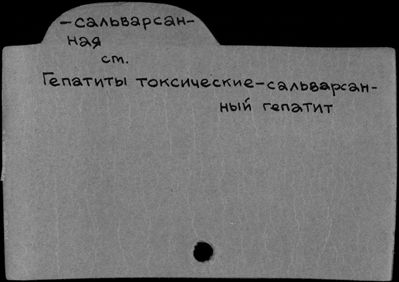 -сальварсан-
ная
ст.
Гепатиты токсические-сальварсан-
ный гепатит